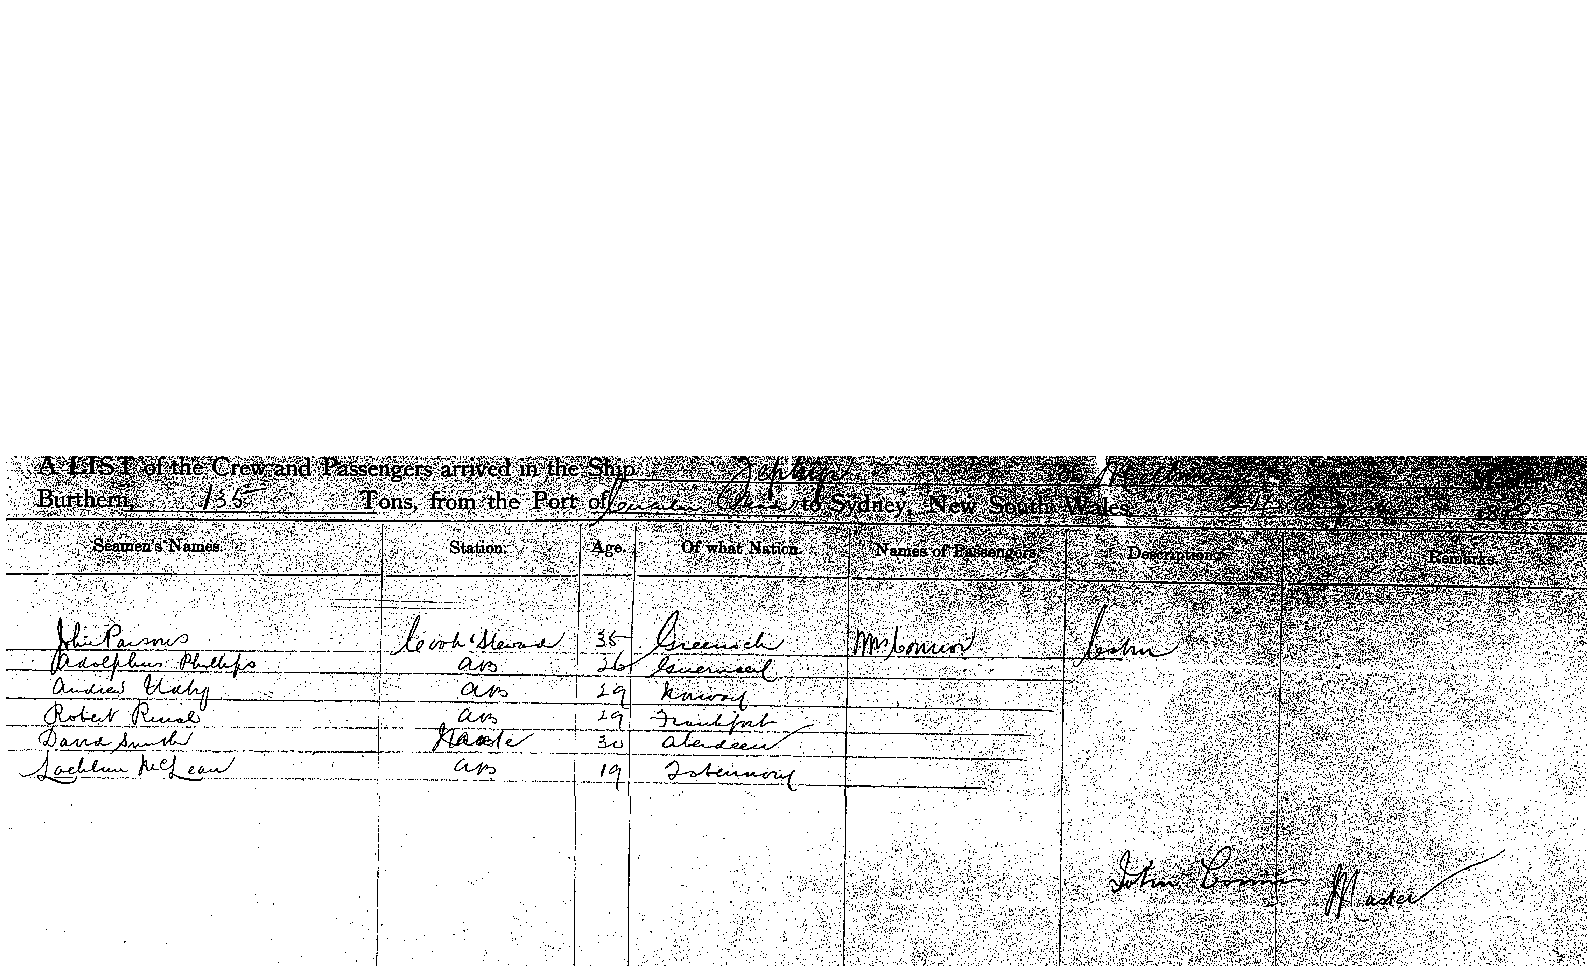 A LIST of the Crew and Passengers arrived in the Ship Zephyr of
Burthern, 135 Tons, from the Port of to Sydney, New South Wales,
Seamen's Names. Station. Age. Of what Nation. Names of Passengers. Descriptions. Remarks.
John Parsons Cook & Steward 35 Greenwich Mrs Connor Cabin
Adolphus Phillips ABS 26 Guernsey
Andrew ABS 29 Norway
Robert ABS 29 Frankfort
David Smith Mate 30 Aberdeen
Lachlan McLean ABS 19 Tobermory
John Connor Master